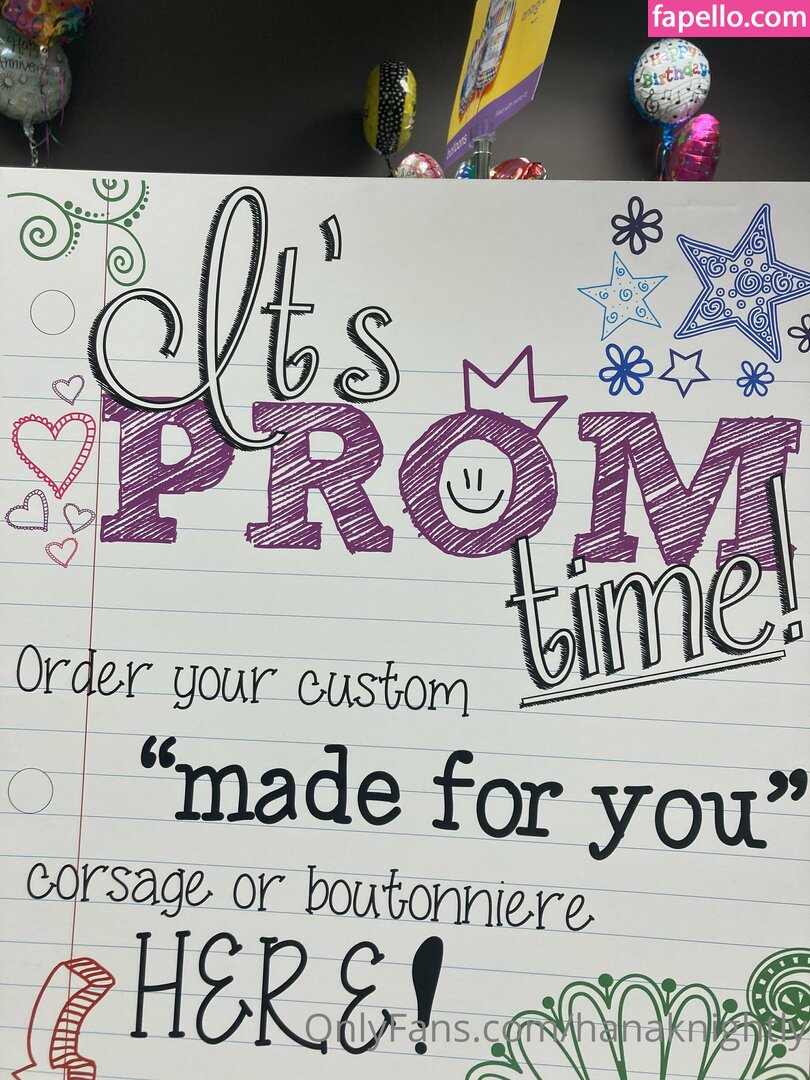 fapello.com
Happy
Anniver
Happy
Birthday
balloons
It's
PROM
time!
Order your custom
“made for you”
corsage or boutonniere
HERE!
OnlyFans.com/hanaknightly